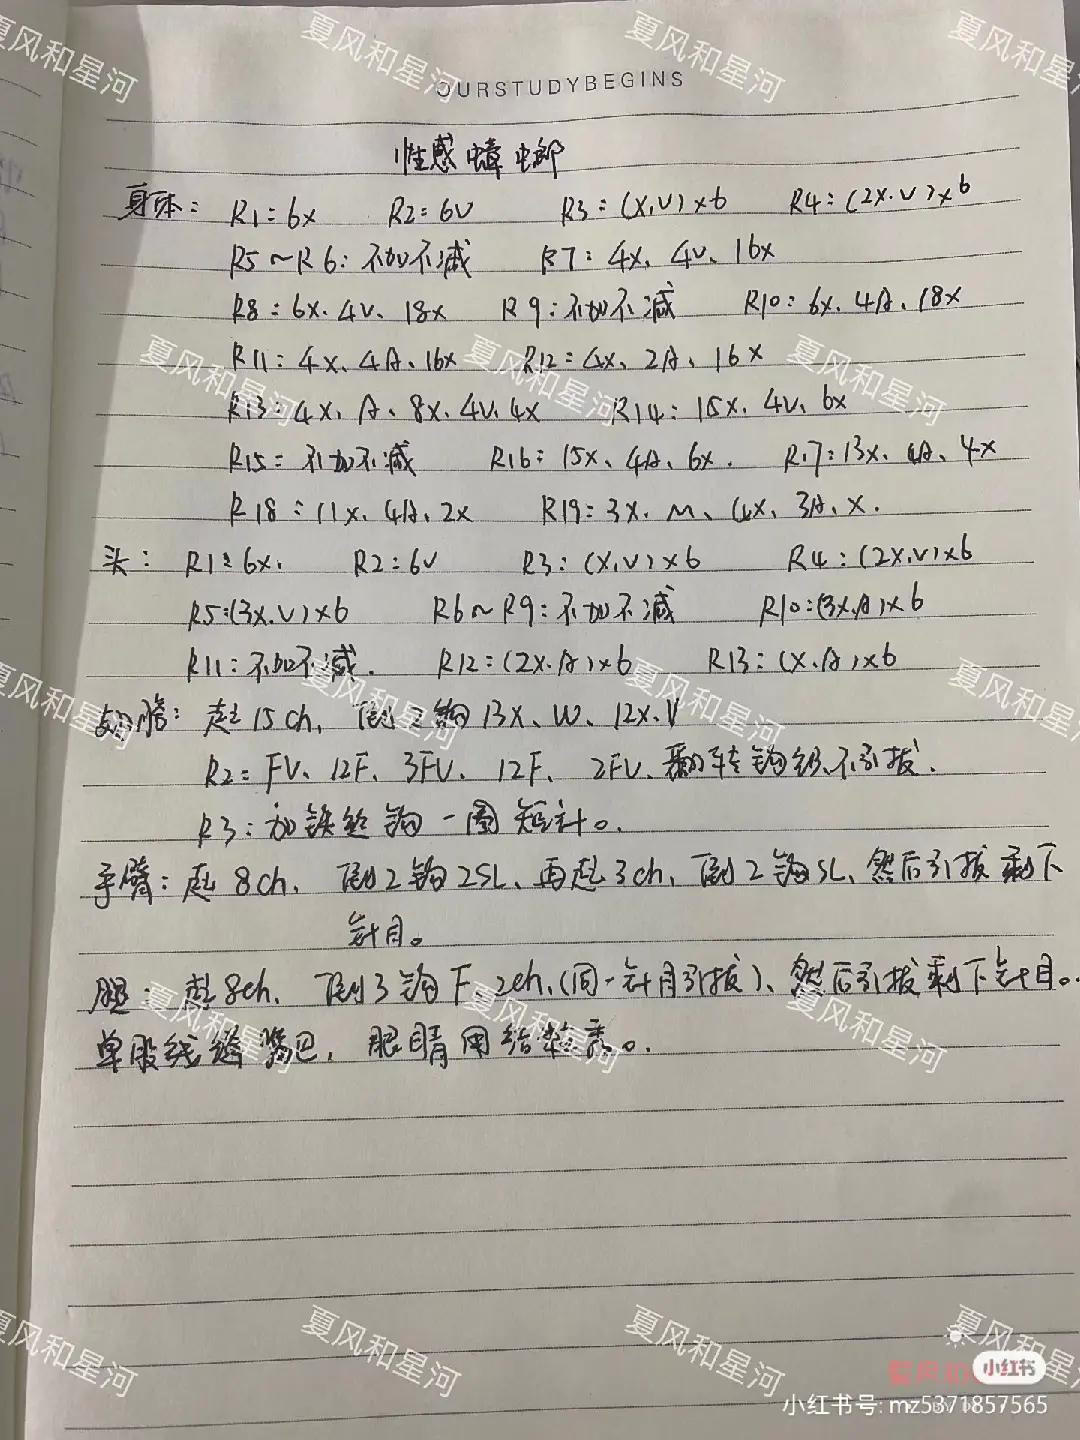 OURSTUDYBEGINS
性感蟑螂
身体: R1=6x R2=6V R3=(X,V)×6 R4:(2X.V)×6
R5~R6:不加不减 R7:4X、4V、16X
R8:6X.4V、18X R9:不加不减 R10:6X.4A.18X
R11:4X、4A、16X R12=4X、2A、16X
R13:4X、A、8X、4V、4X R14:15X、4V、6X
R15=不加不减 R16:15X、4A、6X. R17:13X、4A、4X
R18:11X、4A、2X R19=3X、M、4X、3A、X.
头: R1:6X. R2:6V R3:(X.V)×6 R4:(2X.V)×6
R5:(3X.V)×6 R6~R9:不加不减 R10:(3X.A)×6
R11:不加不减. R12=(2X.A)×6 R13:(X.A)×6
起15ch, 倒2钩13X、W、12X.V
R2=FV、12F、3FV、12F、2FV.翻转钩织、不引拔.
R3:加铁丝钩一圈短针。
手臂:起8ch、倒2钩2SL、再起3ch、倒2钩SL、然后引拔剩下
针目。
腿:起8ch、倒3钩F、2ch、(同一针目引拔)、然后引拔剩下针目。
单股线缝嘴巴,眼睛用绣。
夏风和星河
小红书
小红书号: mz5371857565